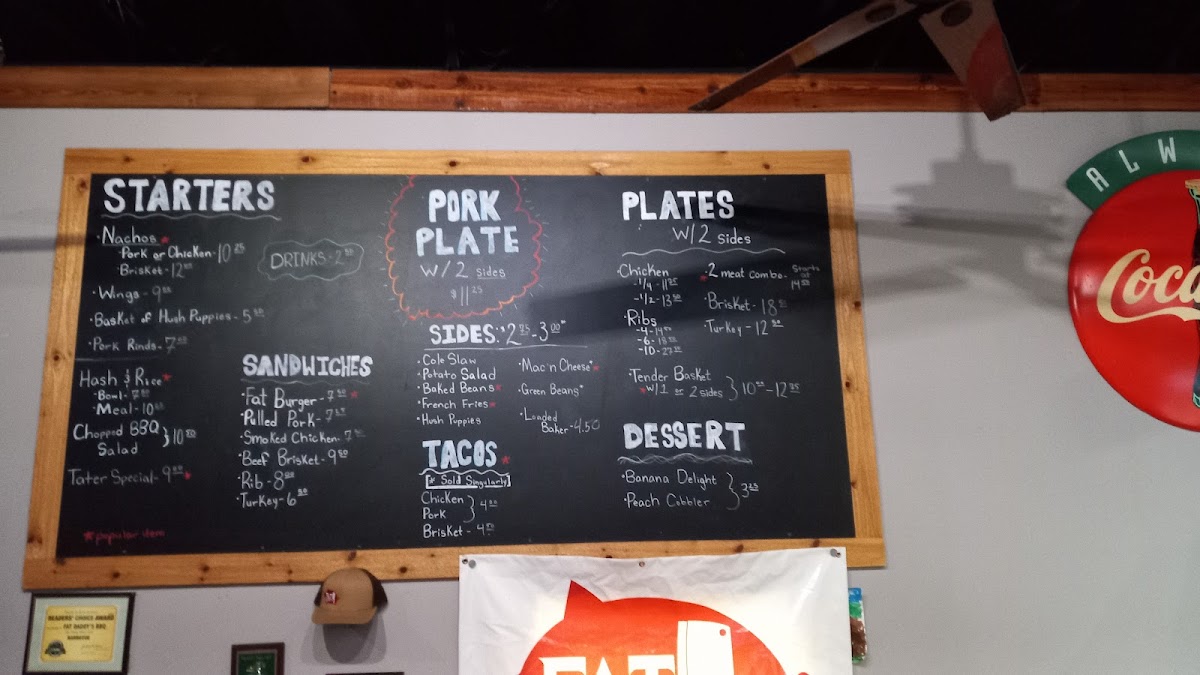 STARTERS
• Nachos *
Pork or Chicken - 10 25
Brisket - 12
• Wings - 9
• Basket of Hush Puppies - 5 50
• Pork Rinds - 7
DRINKS - 2 50
Hash & Rice *
• Bowl - 7
• Meal - 10
Chopped BBQ
Salad
} 10 50
Tater Special - 9 *
* popular item
SANDWICHES
• Fat Burger - 7 50 *
• Pulled Pork - 7
• Smoked Chicken - 7
• Beef Brisket - 9 50
• Rib - 8
• Turkey - 6 50
PORK
PLATE
W/ 2 sides
$11 25
SIDES: $2.75 - 3.00*
• Cole Slaw
• Potato Salad
• Baked Beans *
• French Fries *
• Hush Puppies
• Mac'n Cheese* *
• Green Beans*
• Loaded
Baker - 4.50
TACOS *
[* Sold Singularly]
Chicken
Pork
} 4
Brisket - 4
PLATES
W/2 sides
• Chicken
- 1/4 - 11 25
- 1/2 - 13 50
• Ribs
- 4 - 14
- 6 - 18
- 10 - 27
• Tender Basket
* W/1 or 2 sides } 10 - 12 75
* • 2 meat combo - Starts
at
14
• Brisket - 18
• Turkey - 12 50
DESSERT
• Banana Delight
• Peach Cobbler
} 3
ALW
Coca
READERS' CHOICE AWARD
FAT DADDY'S BBQ
BARBECUE
FAT